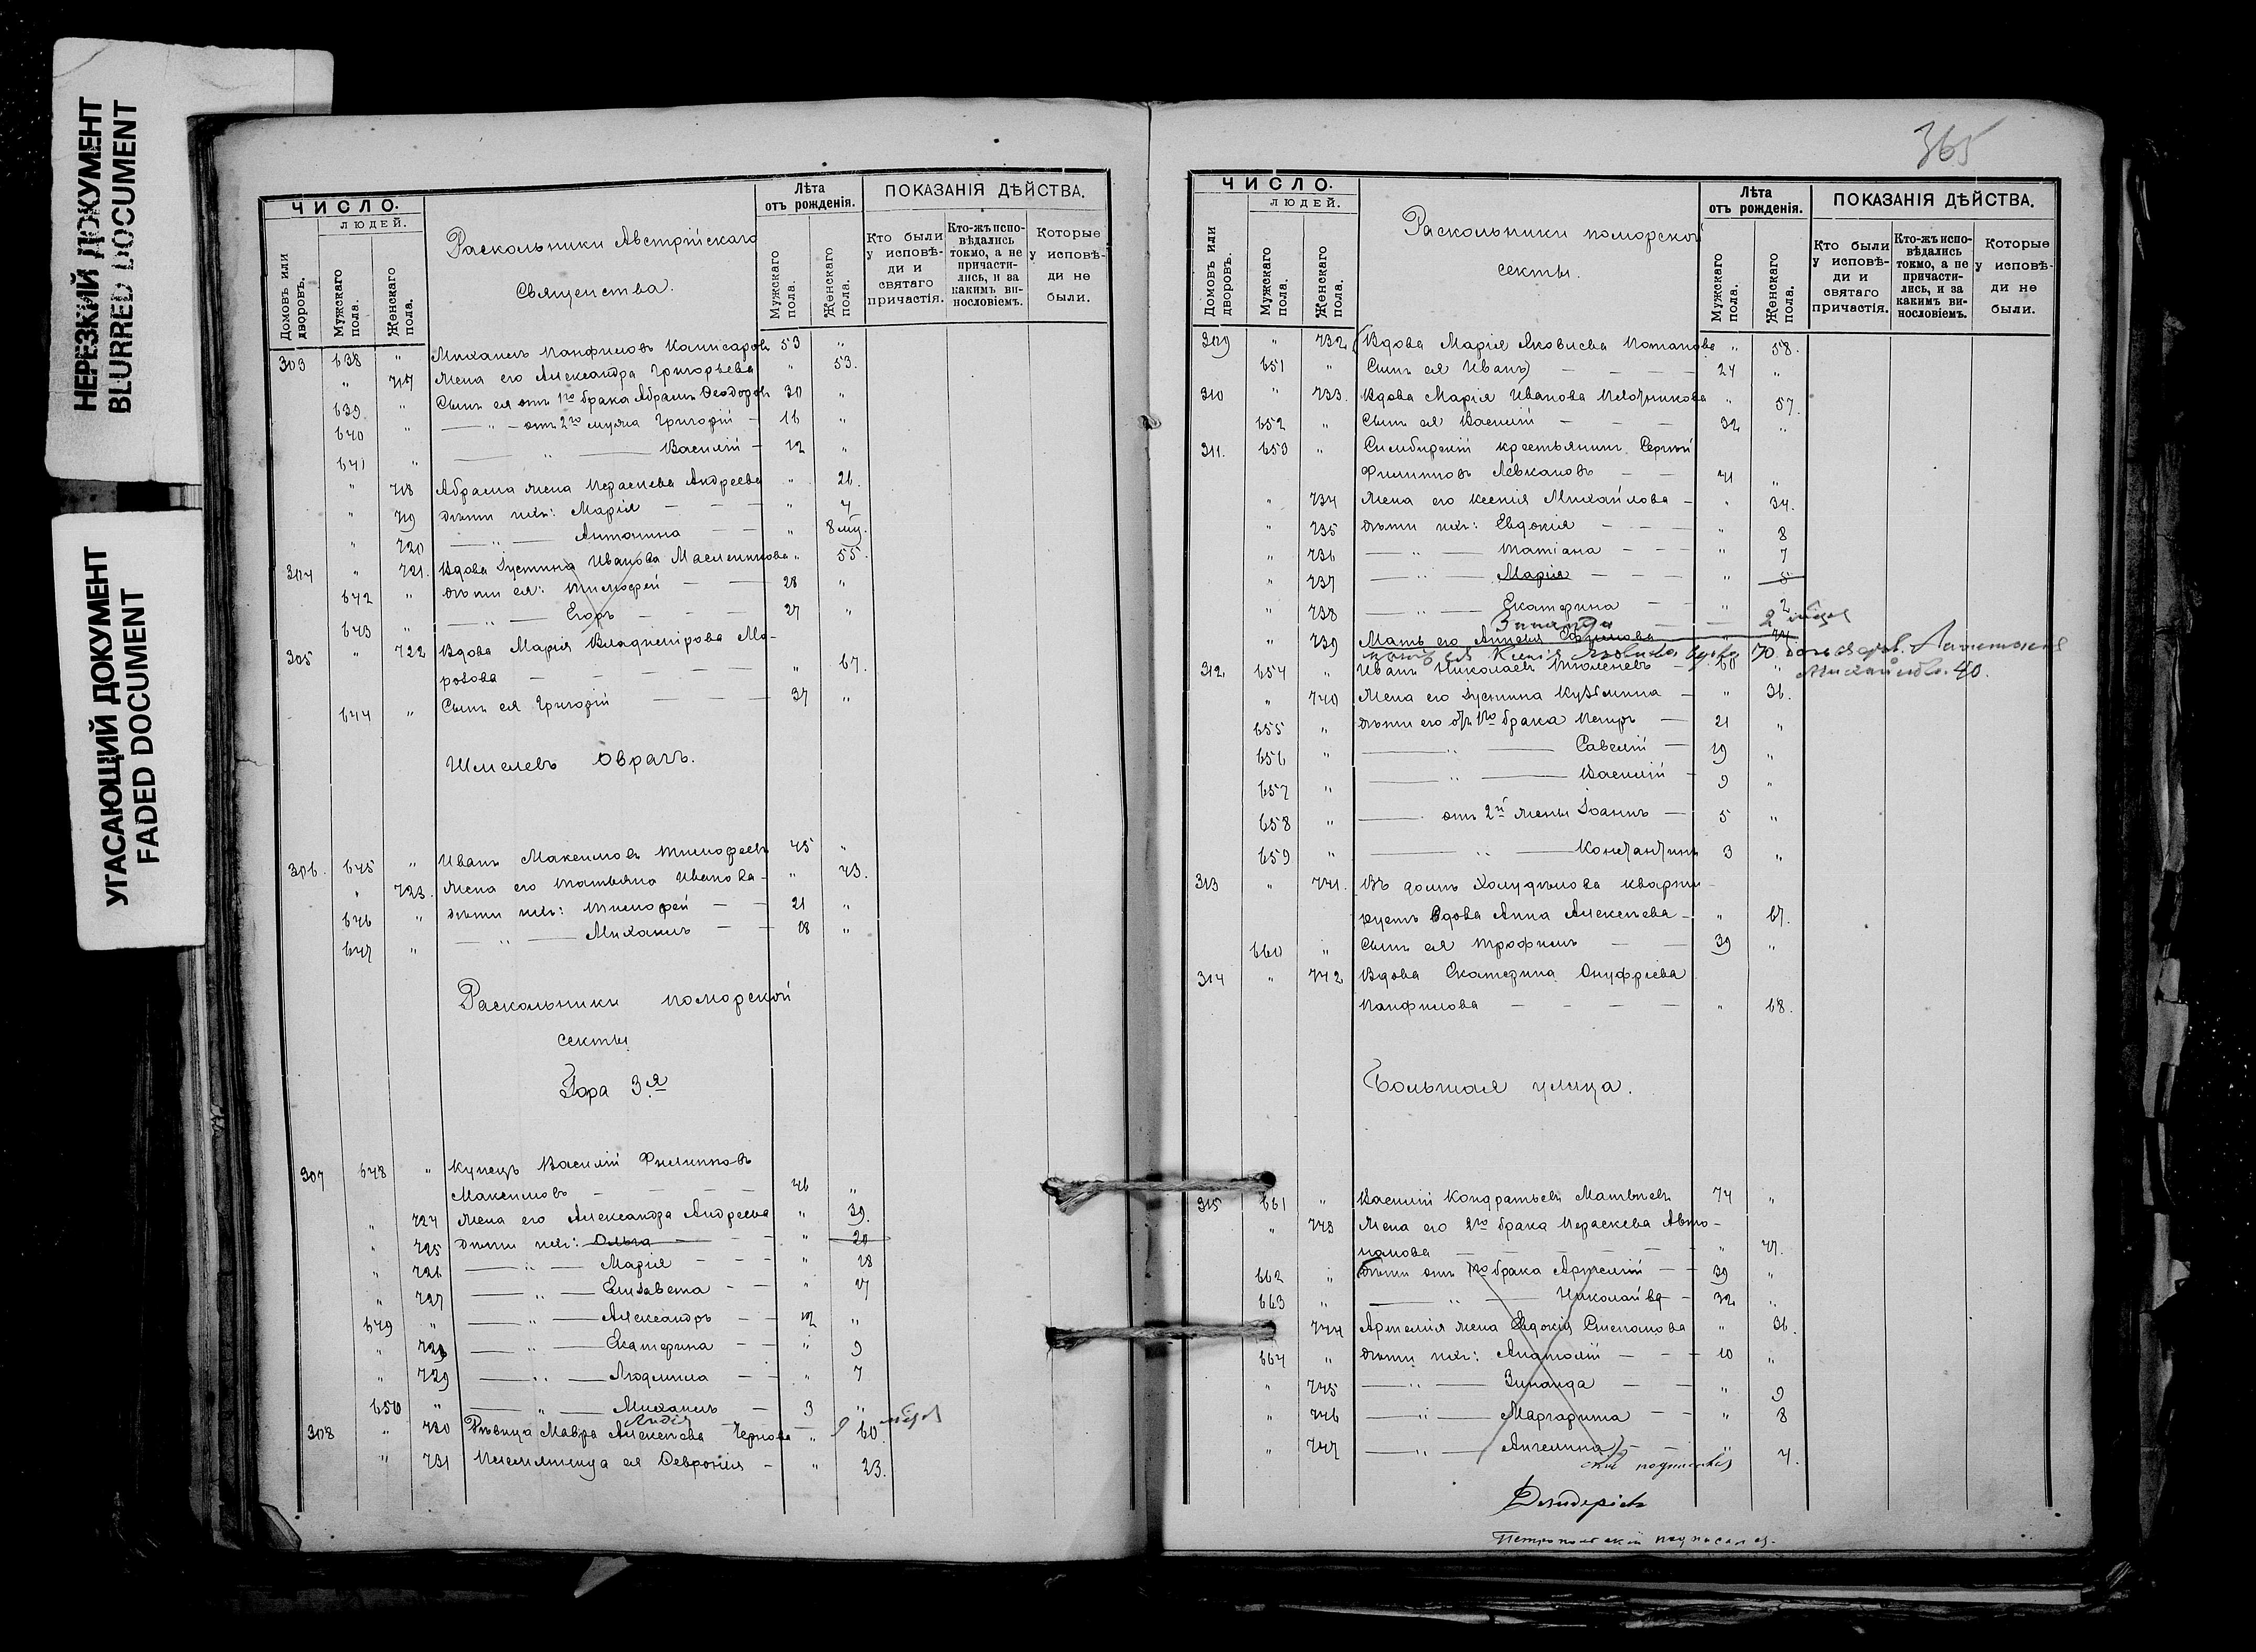 НЕРЕЗКИЙ ДОКУМЕНТ
BLURRED DOCUMENT
УГАСАЮЩИЙ ДОКУМЕНТ
FADED DOCUMENT
ЧИСЛО.
ЛЮДЕЙ.
Домовъ или дворовъ.
Мужскаго пола.
Женскаго пола.
Раскольники Австрійскаго
Священства.
Лѣта
отъ рожденія.
Мужскаго пола.
Женскаго пола.
ПОКАЗАНІЯ ДѢЙСТВА.
Кто были у исповѣ-ди и святаго причастія.
Кто-жъ испо-вѣдались токмо, а не причасти-лись, и за какимъ ви-нословіемъ.
Которые у исповѣ-ди не были.
303 638 " Михаилъ Панфиловъ Комисаровъ 53 "
" 717 Жена его Александра Григорьева " 53.
639 " Сынъ ея отъ 1го брака Абрамъ Ѳеодоровъ 30 "
640 " — " — отъ 2го мужа Григорій — 16 "
641 " — " — Василій — 12 "
" 718 Абрама жена Параскева Андреева " 26.
" 719 Дѣти ихъ: Марія — " 4
" 720 — " — Антонина — " 8 мѣ.
304 " 721. Вдова Іустина Иванова Масленникова " 55.
642 " Дѣти ея: Тимофей — 28 "
643 " — " — Егоръ — 27 "
305 " 722 Вдова Марія Владимірова Мо-
розова — " 67.
644 " Сынъ ея Григорій — 37 "
Шмелевъ Оврагъ.
306. 645 " Иванъ Максимовъ Тимофеевъ 45 "
" 723. Жена его Татьяна Иванова — " 43.
646 " Дѣти ихъ: Тимофей — 21 "
647 " — " — Михаилъ — 18 "
Раскольники поморской
секты
Гора 3я
307 648 " Купецъ Василій Филипповъ
Максимовъ — 46 "
" 724 Жена его Александра Андреева " 39.
" 725 Дѣти ихъ: Ольга — " 20
" 726 — " — Марія — " 18
" 727 — " — Елизавета — " 17
649 " — " — Александръ — 12 "
" 728 — " — Екатерина — " 9
" 729 — " — Людмила — " 7
650 " — " — Михаилъ — 3 "
Лидія
308 " 730 Дѣвица Мавра Алексѣева Чернова " 60.
" 731 Племянница ея Февронія — " 23.
365
ЧИСЛО.
ЛЮДЕЙ.
Домовъ или дворовъ.
Мужскаго пола.
Женскаго пола.
Раскольники поморской
секты.
Лѣта
отъ рожденія.
Мужскаго пола.
Женскаго пола.
ПОКАЗАНІЯ ДѢЙСТВА.
Кто были у исповѣ-ди и святаго причастія.
Кто-жъ испо-вѣдались токмо, а не причасти-лись, и за какимъ ви-нословіемъ.
Которые у исповѣ-ди не были.
309 " 732 Вдова Марія Яковлева Потапова " 58.
651 " Сынъ ея Иванъ — 24 "
310 " 733. Вдова Марія Иванова " 57.
652 " Сынъ ея Василій — 32 "
311. 653 " Симбирскій крестьянинъ Сергѣй
Филипповъ Левкановъ — 41 "
" 734 Жена его Ксенія Михайлова — " 34.
" 735 Дѣти ихъ: Евдокія — " 8
" 736 — " — Татіана — " 7
" 737 — " — Марія — " 5
" 738 — " — Екатерина — " 2
Зинаида — 2
" 739 Мать его Ефимова
70
312 654 " Иванъ Николаевъ — 60 "
Михайлова 40.
" 740 Жена его Іустина Кузьмина — " 36.
655 " Дѣти его отъ 1го брака Петръ — 21 "
656 " — " — Савелій — 19 "
657 " — " — Василій — 9 "
658 " — отъ 2й жены Іоаннъ — 5 "
659 " — " — Константинъ 3 "
313 " 741. Въ домѣ Холудилова кварти-
руетъ Вдова Анна Алексѣева — " 67.
660 " Сынъ ея Трофимъ — 39 "
314 " 742 Вдова Екатерина Онуфріева
Панфилова — " 68.
Большая улица.
315 661 " Василій Кондратьевъ Матвѣевъ 74 "
" 743 Жена его 2го брака Параскева Авто-
номова — " 47.
662 " Дѣти отъ 1го брака Артемій — 39 "
663 " — " — Николай — 32 "
744 Артемія жена Евдокія Степанова " 36.
664 " Дѣти ихъ: Анатолій — 10 "
" 745 — " — Зинаида — " 9
" 746 — " — Маргарита — " 8
" 747 — " — Ангелина — " 4.